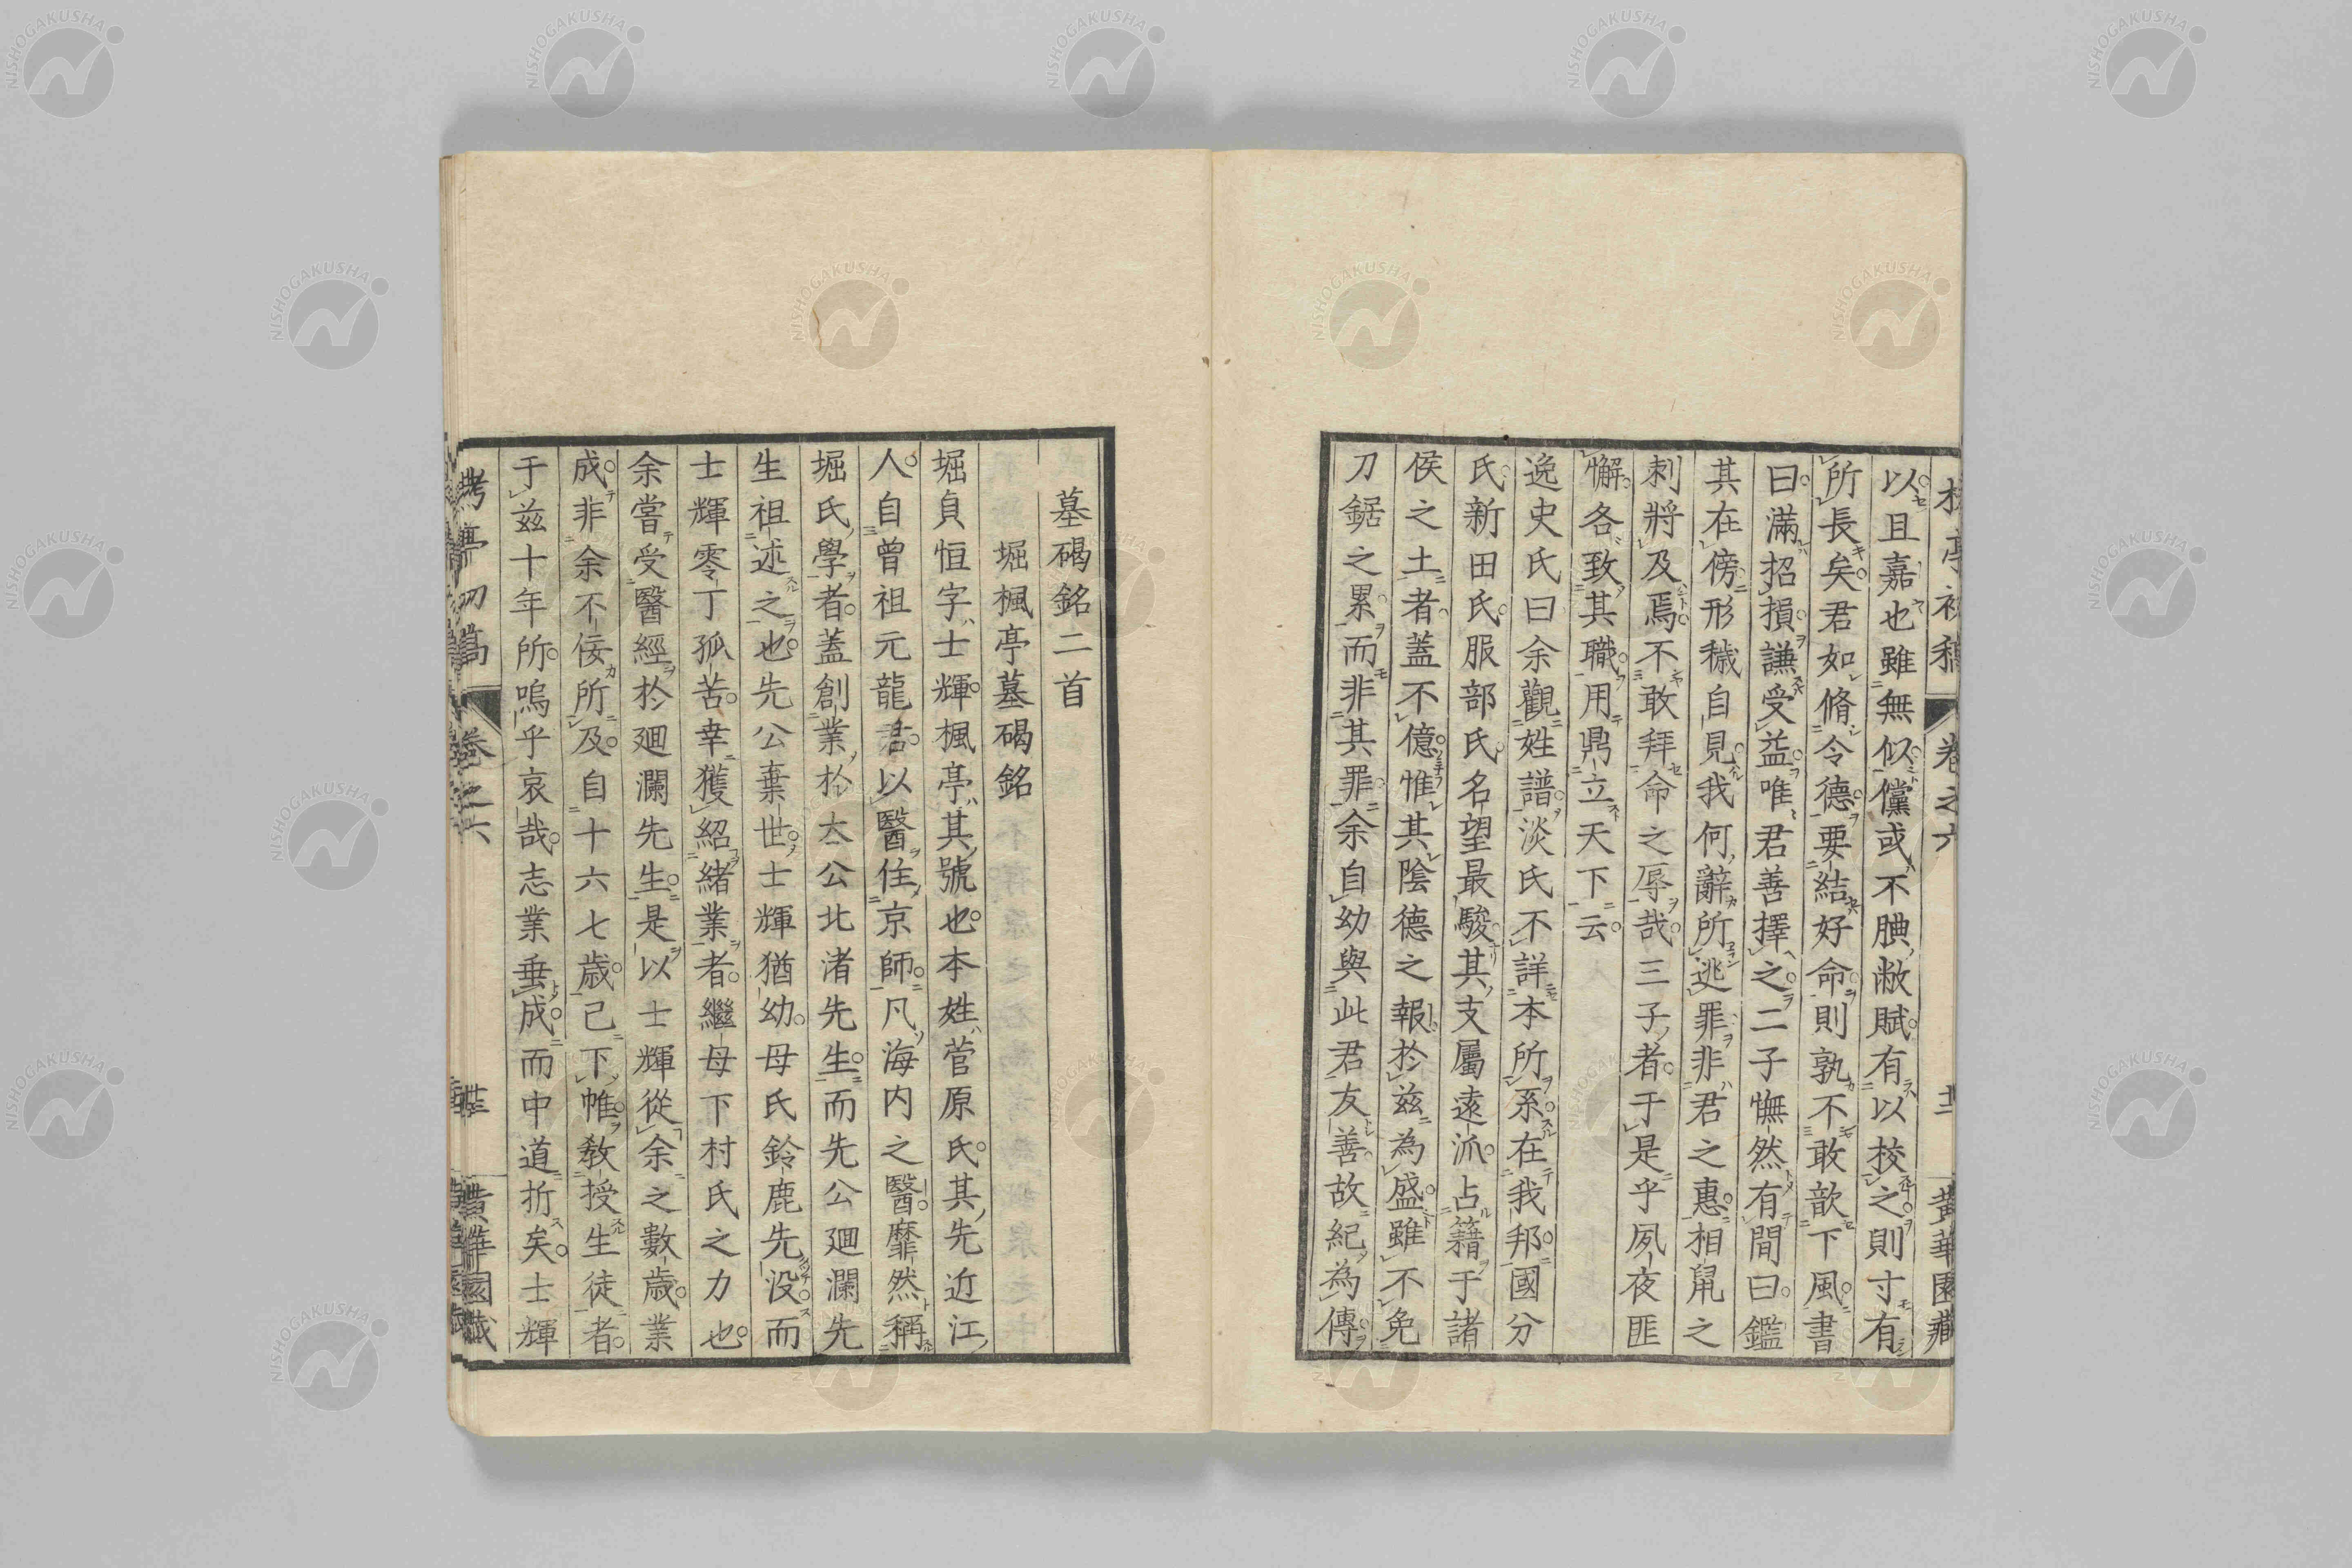 以且嘉也雖無似儻或不腆敝賦有以挍之則寸有
所長矣君如脩令德要結好命則孰不敢歆下風書
曰滿招損謙受益唯君善擇之二子憮然有間曰鑑
其在傍形穢自見我何辭所逃罪非君之惠相鼠之
刺將及焉不敢拜命之辱哉三子者于是乎夙夜匪
懈各致其職用鼎立天下云
逸史氏曰余觀姓譜淡氏不詳本所系在我邦國分
氏新田氏服部氏名望最駿其支屬遠派占籍于諸
侯之土者蓋不億惟其陰德之報於茲為盛雖不免
刀鋸之累而非其罪余自幼與此君友善故紀為傳
墓碣銘二首
堀楓亭墓碣銘
堀貞恒字士輝楓亭其號也本姓菅原氏其先近江
人自曾祖元龍君以醫住京師凡海内之醫靡然稱
堀氏學者蓋創業於太公北渚先生而先公廻瀾先
生祖述之也先公棄世士輝猶幼母氏鈴鹿先没而
士輝零丁孤苦幸獲紹緒業者繼母下村氏之力也
余嘗受醫經於廻瀾先生是以士輝從余之數歳業
成非余不佞所及自十六七歳己下帷教授生徒者
于茲十年所嗚乎哀哉志業垂成而中道折矣士輝
卷之六
NISHOGAKUSHA